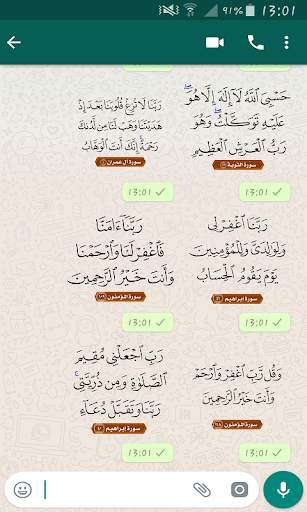 91% 13:01
حَسْبِيَ ٱللَّهُ لَآ إِلَٰهَ إِلَّا هُوَۖ
عَلَيْهِ تَوَكَّلْتُۖ وَهُوَ
رَبُّ ٱلْعَرْشِ ٱلْعَظِيمِ
سورة التوبة
رَبَّنَا لَا تُزِغْ قُلُوبَنَا بَعْدَ إِذْ
هَدَيْتَنَا وَهَبْ لَنَا مِن لَّدُنكَ
رَحْمَةًۚ إِنَّكَ أَنتَ ٱلْوَهَّابُ
سورة آل عمران
13:01
13:01
رَبَّنَا ٱغْفِرْ لِى
وَلِوَٰلِدَىَّ وَلِلْمُؤْمِنِينَ
يَوْمَ يَقُومُ ٱلْحِسَابُ
سورة إبراهيم ٤١
رَبَّنَآ ءَامَنَّا
فَٱغْفِرْ لَنَا وَٱرْحَمْنَا
وَأَنتَ خَيْرُ ٱلرَّٰحِمِينَ
سورة المؤمنون ١٠٩
13:01
13:01
وَقُل رَّبِّ ٱغْفِرْ وَٱرْحَمْ
وَأَنتَ خَيْرُ ٱلرَّٰحِمِينَ
سورة المؤمنون ١١٨
رَبِّ ٱجْعَلْنِى مُقِيمَ
ٱلصَّلَوٰةِ وَمِن ذُرِّيَّتِىۚ
رَبَّنَا وَتَقَبَّلْ دُعَآءِ
سورة إبراهيم ٤٠
13:01
13:01